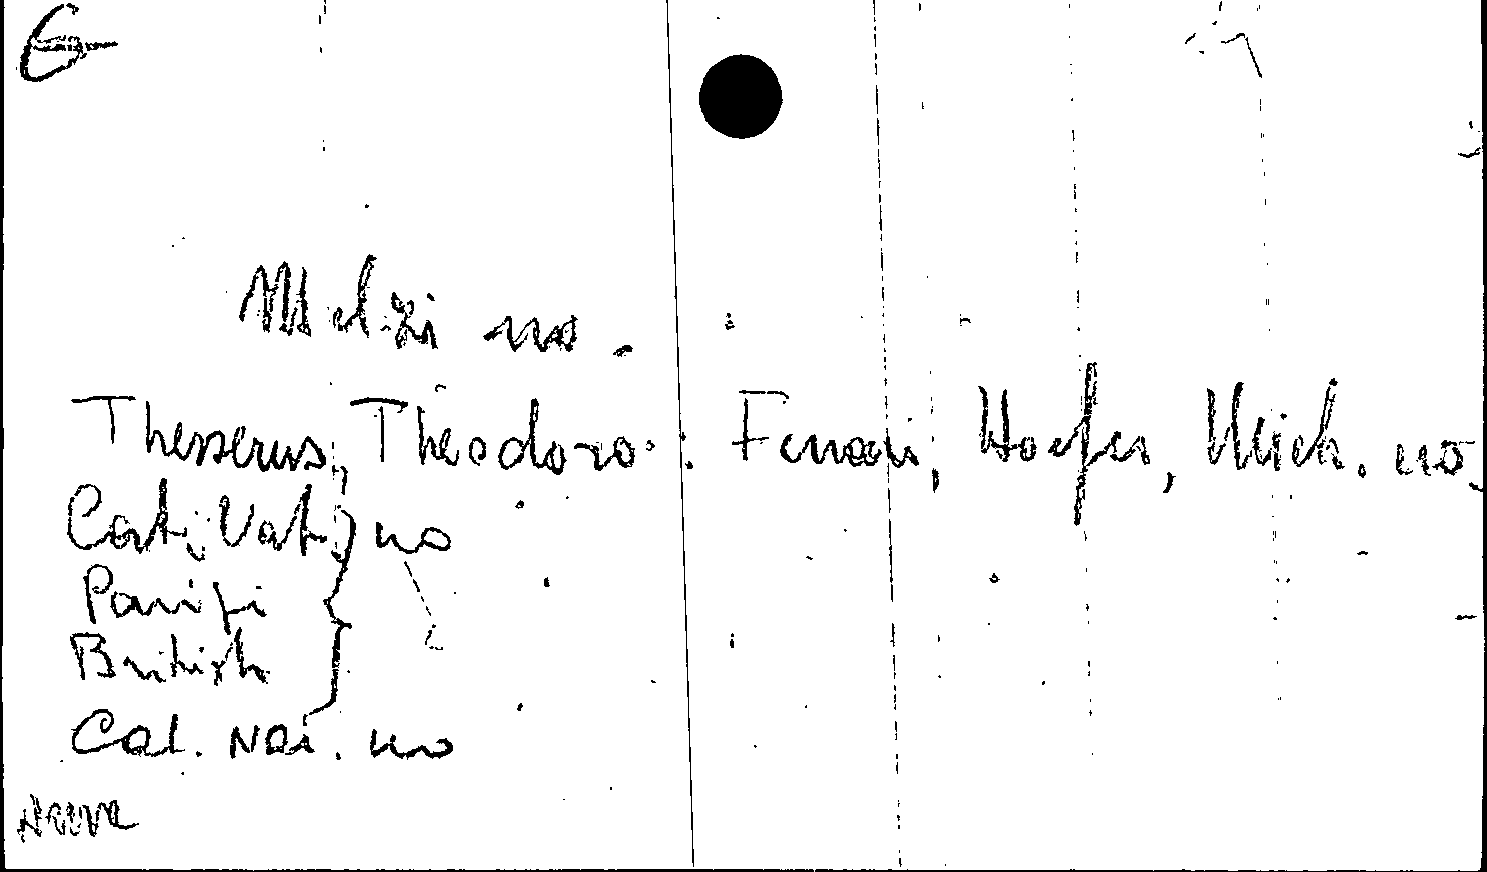 Melzi no.
Thesserus, Theodoro: Ferrari, Hoefer, Mich. no.
Cat. Vat. no
Parigi
British
Cat. Naz. no